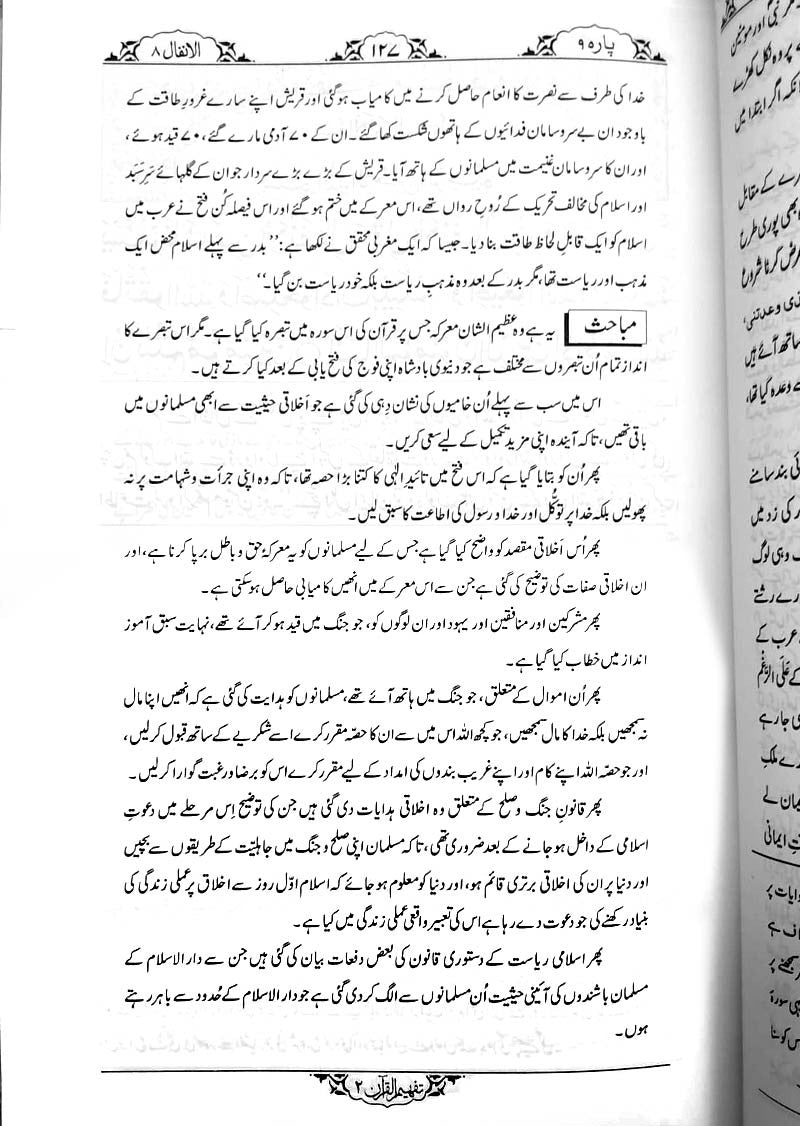 پارہ ۹
۱۲۷
الانفال ۸
خدا کی طرف سے نصرت کا انعام حاصل کرنے میں کامیاب ہو گئی اور قریش اپنے سارے غرورِ طاقت کے
باوجود ان بے سروسامان فدائیوں کے ہاتھوں شکست کھا گئے۔ ان کے ۷۰ آدمی مارے گئے، ۷۰ قید ہوئے،
اور ان کا سروسامان غنیمت میں مسلمانوں کے ہاتھ آیا۔ قریش کے بڑے بڑے سردار جو ان کے گلہائے سَرِ سَبَد
اور اسلام کی مخالف تحریک کے رُوحِ رواں تھے، اس معرکے میں ختم ہو گئے اور اس فیصلہ کُن فتح نے عرب میں
اسلام کو ایک قابلِ لحاظ طاقت بنا دیا۔ جیسا کہ ایک مغربی محقق نے لکھا ہے: ’’بدر سے پہلے اسلام محض ایک
مذہب اور ریاست تھا، مگر بدر کے بعد وہ مذہبِ ریاست بلکہ خود ریاست بن گیا۔‘‘
مباحث یہ ہے وہ عظیم الشان معرکہ جس پر قرآن کی اس سورہ میں تبصرہ کیا گیا ہے۔ مگر اس تبصرے کا
انداز تمام اُن تبصروں سے مختلف ہے جو دنیوی بادشاہ اپنی فوج کی فتح یابی کے بعد کیا کرتے ہیں۔
اس میں سب سے پہلے اُن خامیوں کی نشان دِہی کی گئی ہے جو اَخلاقی حیثیت سے ابھی مسلمانوں میں
باقی تھیں، تاکہ آیندہ اپنی مزید تکمیل کے لیے سعی کریں۔
پھر اُن کو بتایا گیا ہے کہ اس فتح میں تائیدِ الٰہی کا کتنا بڑا حصہ تھا، تاکہ وہ اپنی جرأت و شہامت پر نہ
پھولیں بلکہ خدا پر توکُّل اور خدا و رسول کی اطاعت کا سبق لیں۔
پھر اُس اَخلاقی مقصد کو واضح کیا گیا ہے جس کے لیے مسلمانوں کو یہ معرکۂ حق و باطل برپا کرنا ہے، اور
ان اخلاقی صفات کی توضیح کی گئی ہے جن سے اس معرکے میں انھیں کامیابی حاصل ہو سکتی ہے۔
پھر مشرکین اور منافقین اور یہود اور ان لوگوں کو، جو جنگ میں قید ہو کر آئے تھے، نہایت سبق آموز
انداز میں خطاب کیا گیا ہے۔
پھر اُن اموال کے متعلق، جو جنگ میں ہاتھ آئے تھے، مسلمانوں کو ہدایت کی گئی ہے کہ انھیں اپنا مال
نہ سمجھیں بلکہ خدا کا مال سمجھیں، جو کچھ اللہ اس میں سے ان کا حصّہ مقرر کرے اسے شکریے کے ساتھ قبول کر لیں،
اور جو حصّہ اللہ اپنے کام اور اپنے غریب بندوں کی امداد کے لیے مقرر کرے اس کو برضا و رغبت گوارا کر لیں۔
پھر قانونِ جنگ و صلح کے متعلق وہ اخلاقی ہدایات دی گئی ہیں جن کی توضیح اِس مرحلے میں دعوتِ
اسلامی کے داخل ہو جانے کے بعد ضروری تھی، تاکہ مسلمان اپنی صلح و جنگ میں جاہلیّت کے طریقوں سے بچیں
اور دنیا پر ان کی اخلاقی برتری قائم ہو، اور دنیا کو معلوم ہو جائے کہ اسلام اوّل روز سے اخلاق پر عملی زندگی کی
بنیاد رکھنے کی جو دعوت دے رہا ہے اس کی تعبیر واقعی عملی زندگی میں کیا ہے۔
پھر اسلامی ریاست کے دستوری قانون کی بعض دفعات بیان کی گئی ہیں جن سے دار الاسلام کے
مسلمان باشندوں کی آئینی حیثیت اُن مسلمانوں سے الگ کر دی گئی ہے جو دار الاسلام کے حُدود سے باہر رہتے
ہوں۔
تفہیم القرآن ۲